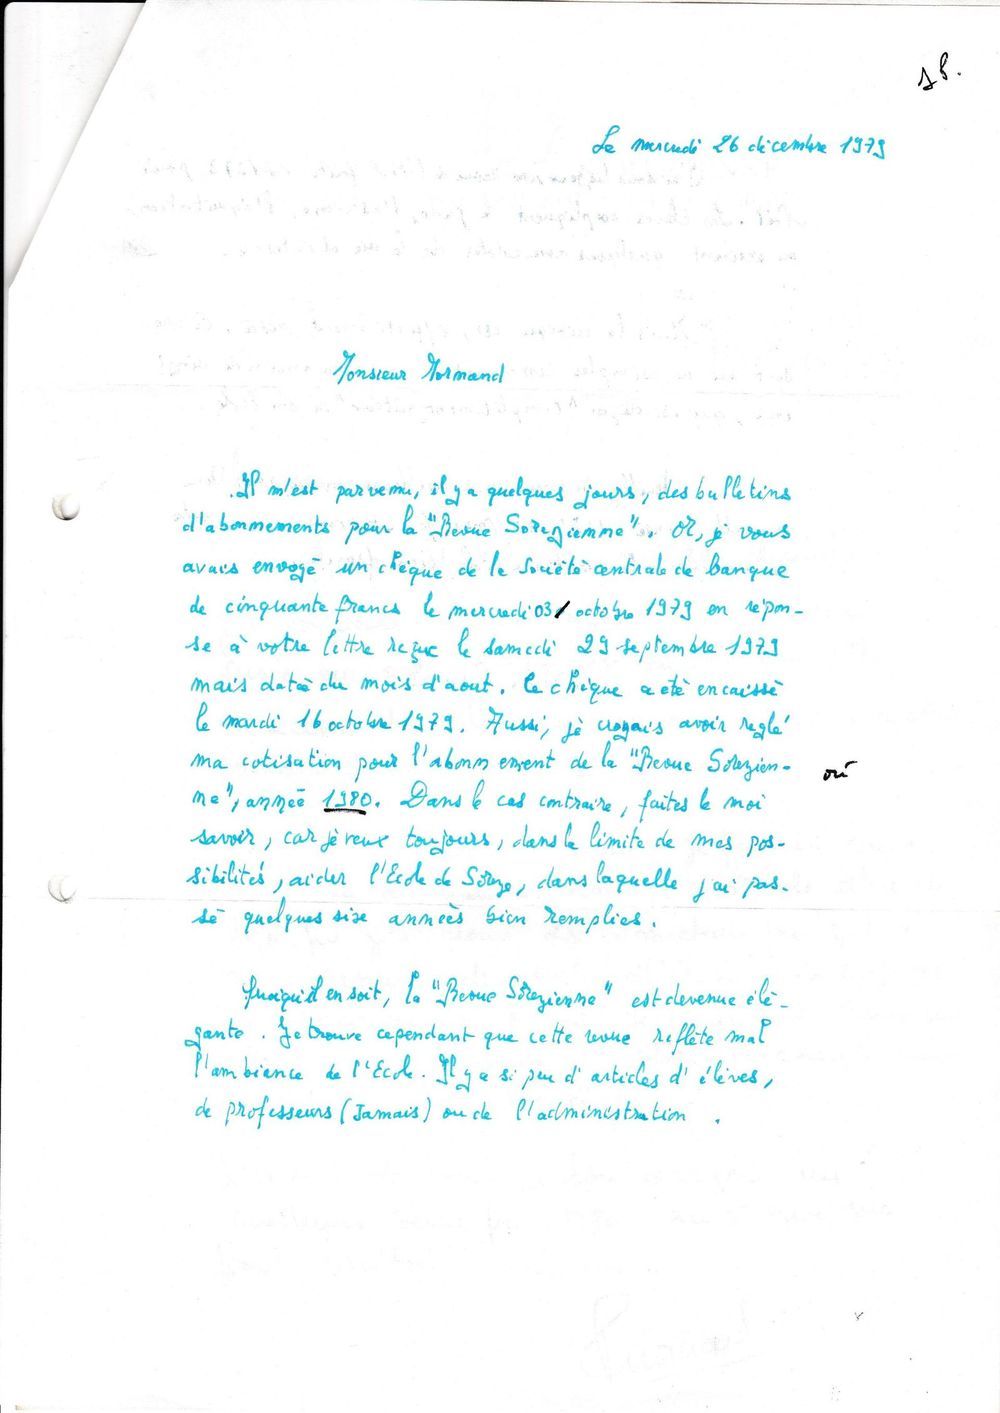 Le mercredi 26 décembre 1979
Monsieur Normand
Il m'est parvenu, il y a quelques jours, des bulletins
d'abonnements pour la "Revue Sorezienne". Or, je vous
avais envoyé un chèque de la Société centrale de banque
de cinquante francs le mercredi 03 octobre 1979 en répon-
se à votre lettre reçue le samedi 29 septembre 1979
mais datée du mois d'aout. Le chèque a été encaissé
le mardi 16 octobre 1979. Aussi, je croyais avoir reglé
ma cotisation pour l'abonnement de la "Revue Sorezien-
ne", année 1980. Dans le cas contraire, faites le moi
savoir, car je veux toujours, dans la limite de mes pos-
sibilités, aider l'Ecole de Sorèze, dans laquelle j'ai pas-
sé quelques six années bien remplies.
Quoiqu'il en soit, la "Revue Sorezienne" est devenue élé-
gante. Je trouve cependant que cette revue reflète mal
l'ambiance de l'Ecole. Il y a si peu d'articles d'élèves,
de professeurs (Jamais) ou de l'administration.